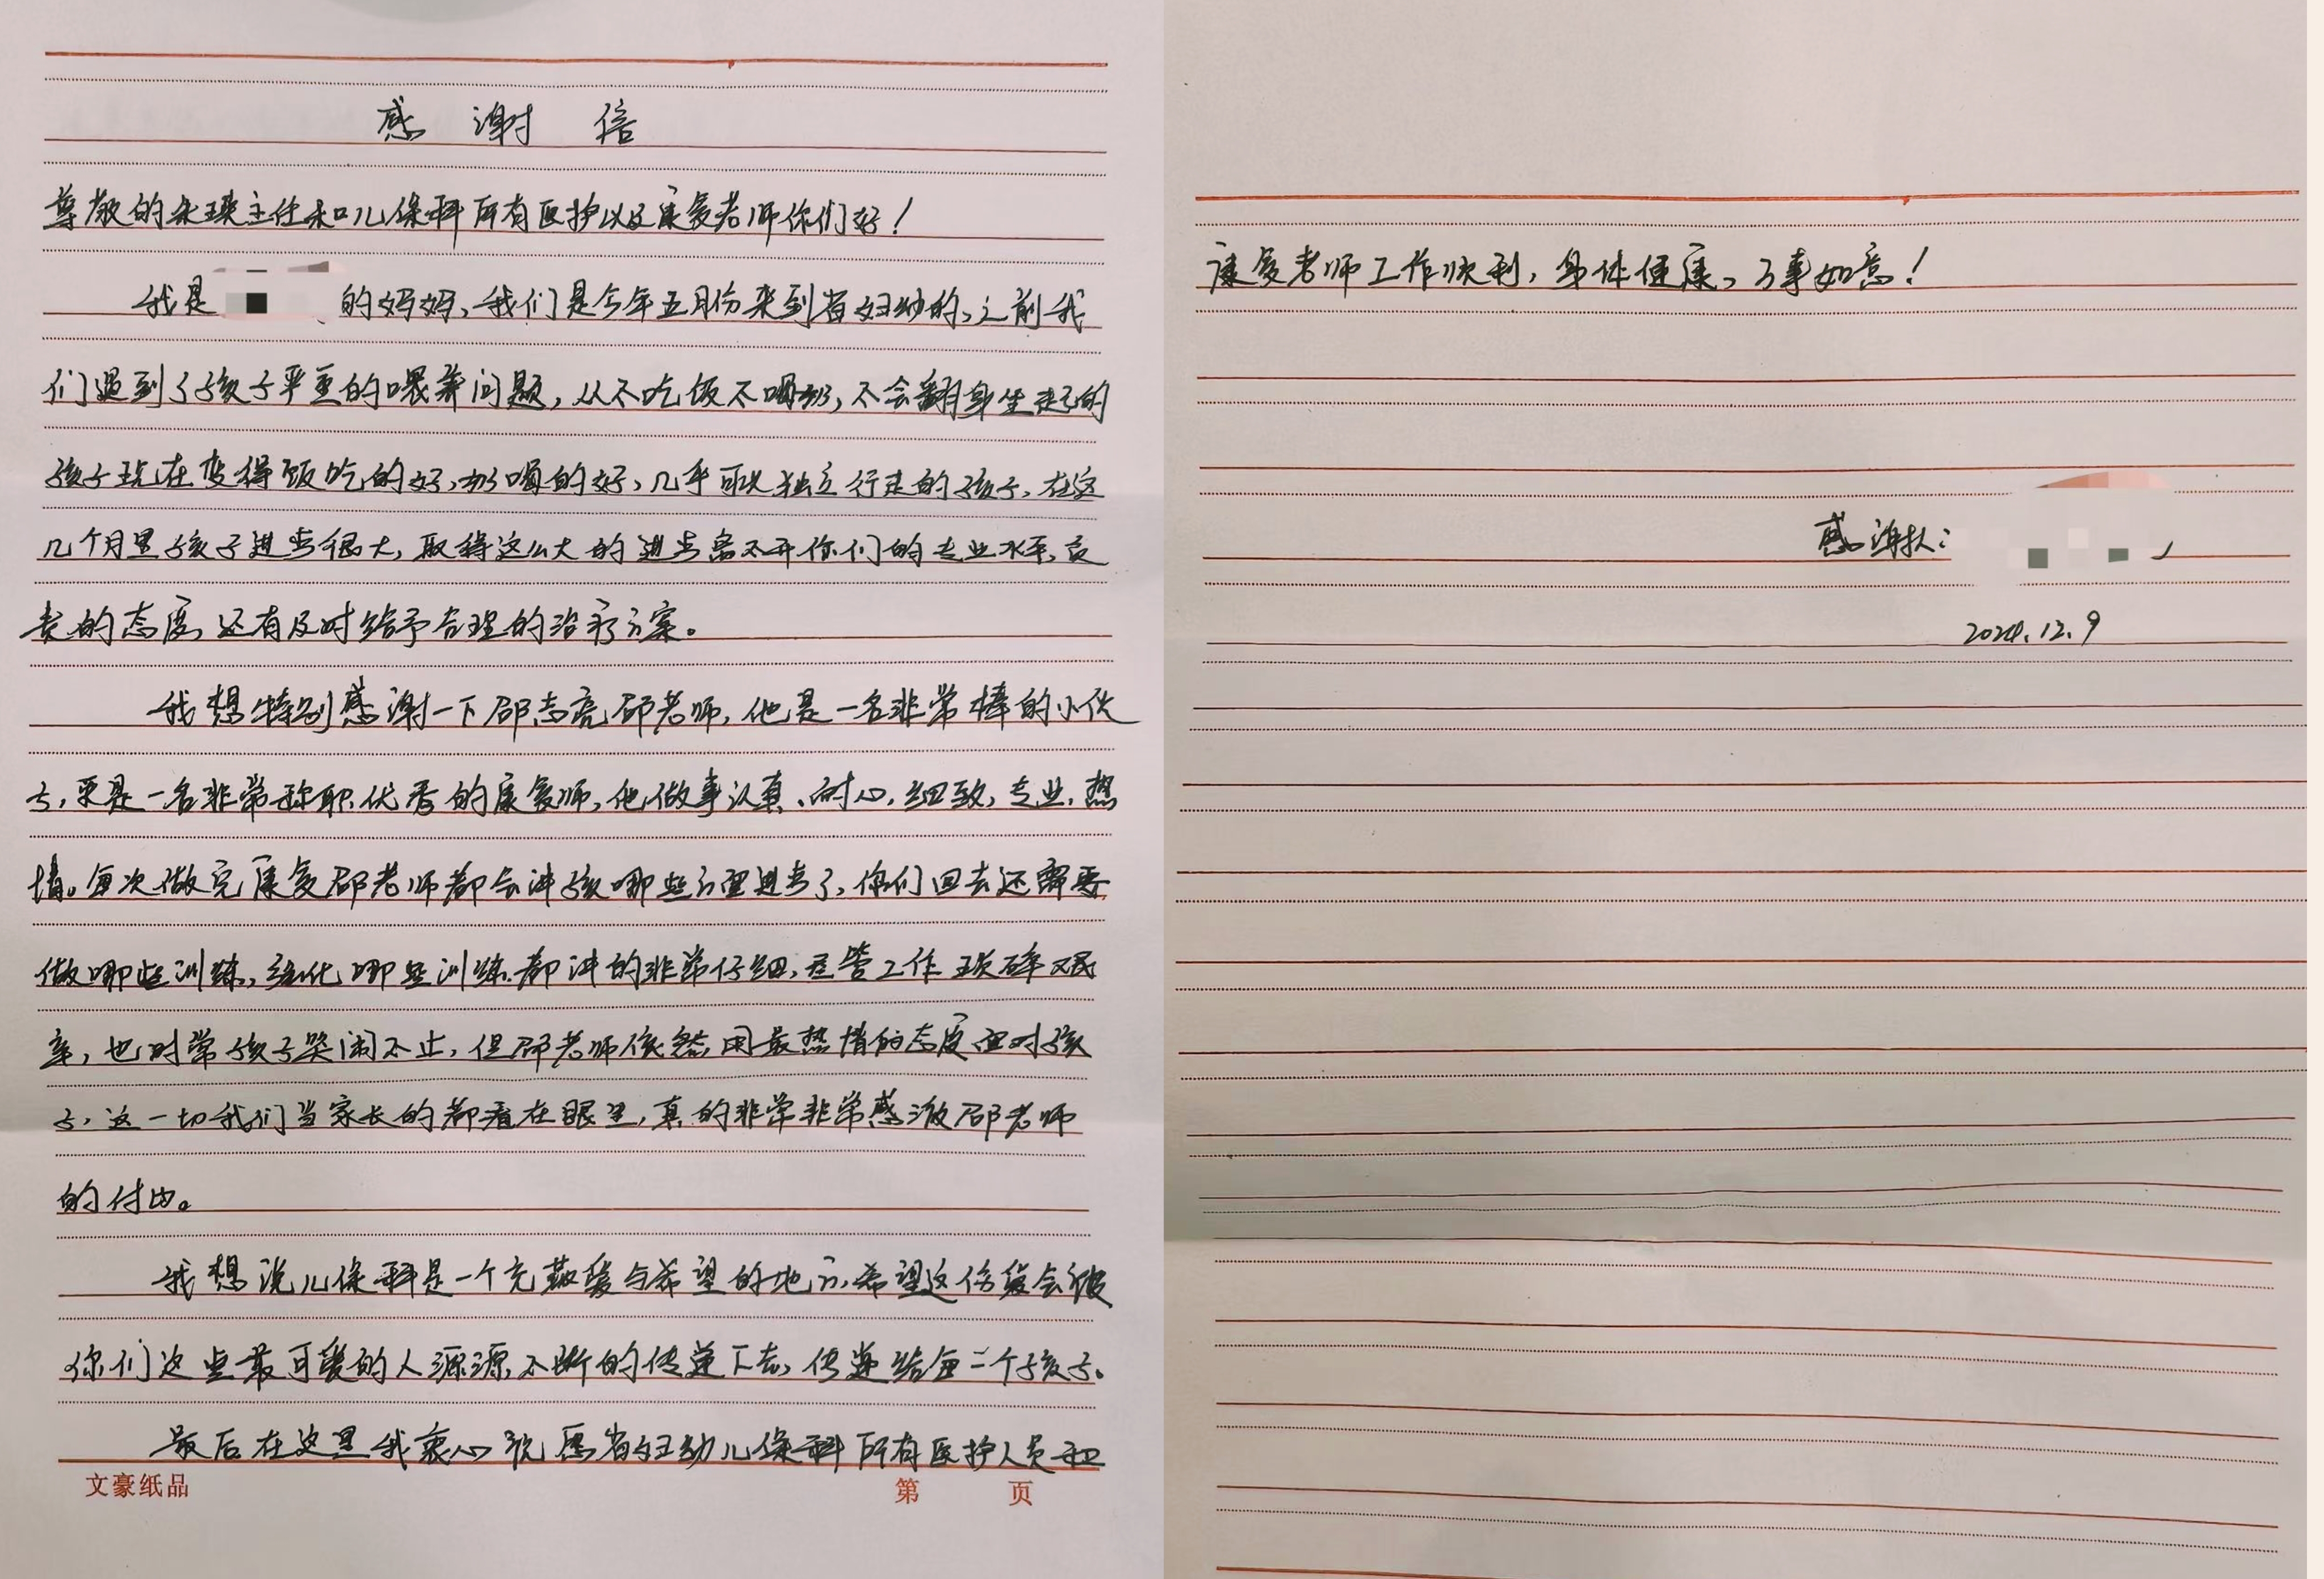 感谢信
尊敬的朱瑛主任和儿保科所有医护以及康复老师你们好！
我是 的妈妈、我们是今年五月份来到省妇幼的、之前我
们遇到了孩子严重的喂养问题，从不吃饭不喝奶，不会翻身坐起的
孩子现在变得饭吃的好，奶喝的好，几乎可以独立行走的孩子，在这
几个月里孩子进步很大，取得这么大的进步离不开你们的专业水平，负
责的态度，还有及时给予合理的治疗方案。
我想特别感谢一下邵志亮邵老师，他是一名非常棒的小伙
子，更是一名非常称职优秀的康复师，他做事认真、耐心，细致，专业，热
情。每次做完康复邵老师都会讲孩哪些方面进步了，你们回去还需要
做哪些训练，强化哪些训练都讲的非常仔细，尽管工作琐碎艰
辛，也时常孩子哭闹不止，但邵老师依然用最热情的态度面对孩
子，这一切我们当家长的都看在眼里，真的非常非常感激邵老师
的付出。
我想说儿保科是一个充满爱与希望的地方，希望这份爱会被
你们这些最可爱的人源源不断的传递下去，传递给每一个孩子。
最后在这里我衷心祝愿省妇幼儿保科所有医护人员和
文豪纸品 第 页
康复老师工作顺利，身体健康、万事如意！
感谢人：
2024.12.9